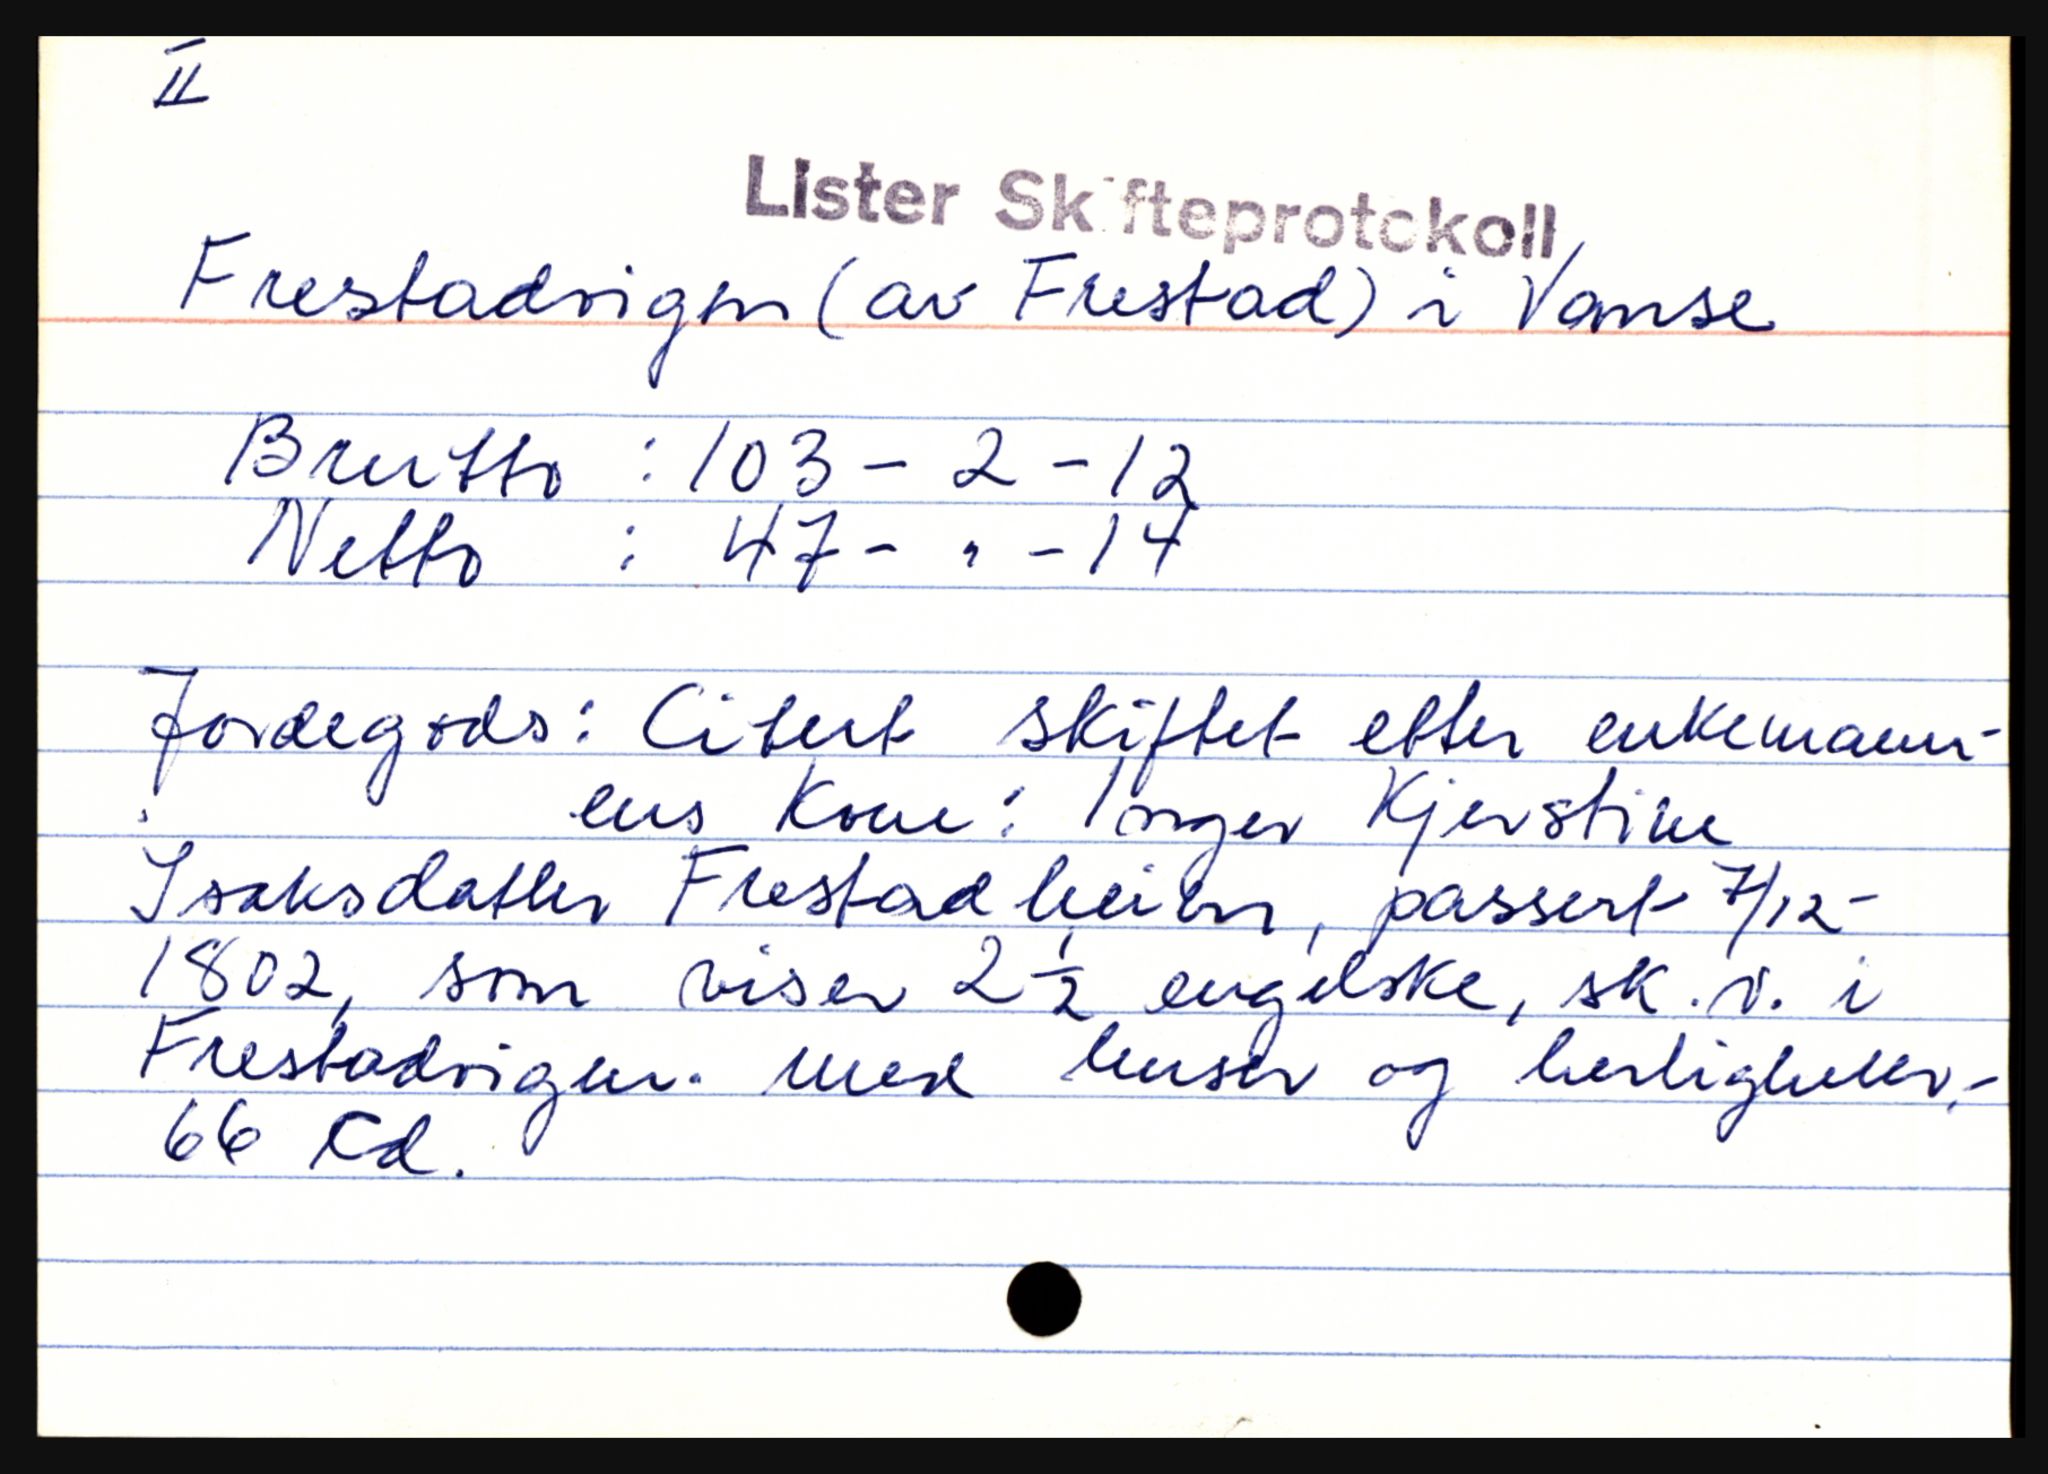 II
Lister Skifteprotokoll
Frestadvigen (av Frestad) i Vanse
Brutto : 103 - 2 - 12
Netto : 47 - " - 14
Jordegods: Citert skiftet etter enkemann-
ens kone: Inger Kjerstine
Isaksdatter Frestadheien, passert 7/12-
1802, som viser 2 1/2 engelske, sk. v. i
Frestadvigen. med huser og herligheter,-
66 Rd.